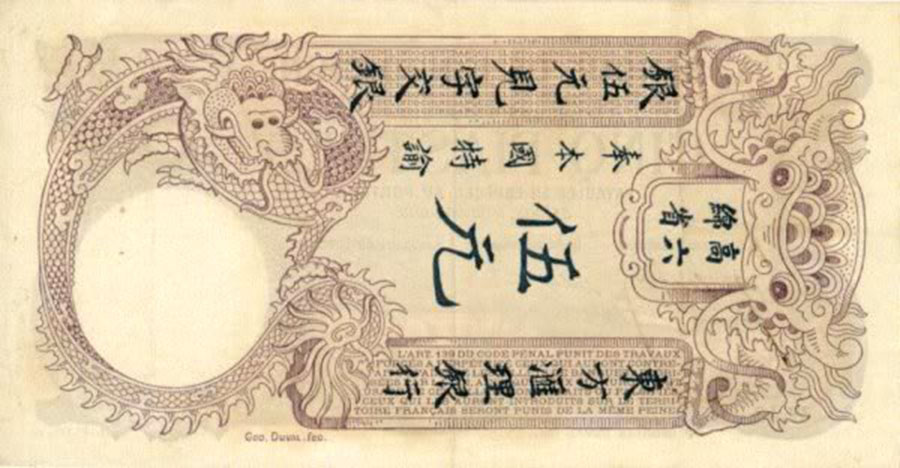 高綿
六省
東方滙理銀行
伍元
奉本國特諭
銀伍元見字交銀
L'ART. 139 DU CODE PÉNAL PUNIT DES TRAVAUX
TOIRE FRANÇAIS SERONT PUNIS DE LA MÊME PEINE
Geo. Duval. fec.